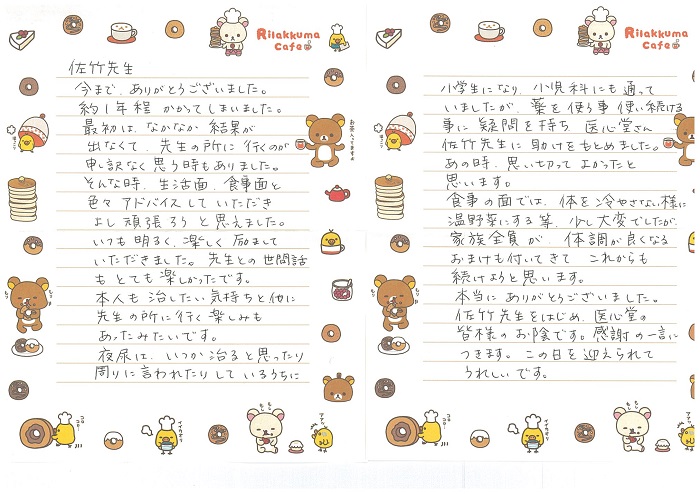 Rilakkuma
Cafe
佐竹先生
今まで、ありがとうございました。
約1年程 かかってしまいました。
最初は、なかなか 結果が
出なくて、先生の所に 行くのが
申し訳なく 思う時もありました。
そんな時、生活面、食事面と
色々 アドバイスして いただき
よし 頑張ろう と思えました。
いつも 明るく、楽しく 励まして
いただきました。先生との 世間話
も とても 楽しかったです。
本人も 治したい 気持ちと他に
先生の所に行く 楽しみも
あったみたいです。
夜尿は、いつか 治ると 思ったり
周りに 言われたり して いるうちに
お茶入ってますよ
Rilakkuma
Cafe
小学生になり、小児科にも 通って
いましたが、薬を 使う事 使い続ける
事に 疑問を 持ち、医心堂さん
佐竹先生に 助けを もとめました。
あの時、思い切って よかったと
思います。
食事の面では、体を 冷やさない様に
温野菜にする 等、少し大変でしたが、
家族全員が、体調が 良くなる
おまけも 付いてきて これからも
続けようと 思います。
本当に ありがとうございました。
佐竹先生をはじめ、医心堂の
皆様の お陰です。感謝の一言に
つきます。この日を 迎えられて
うれしいです。